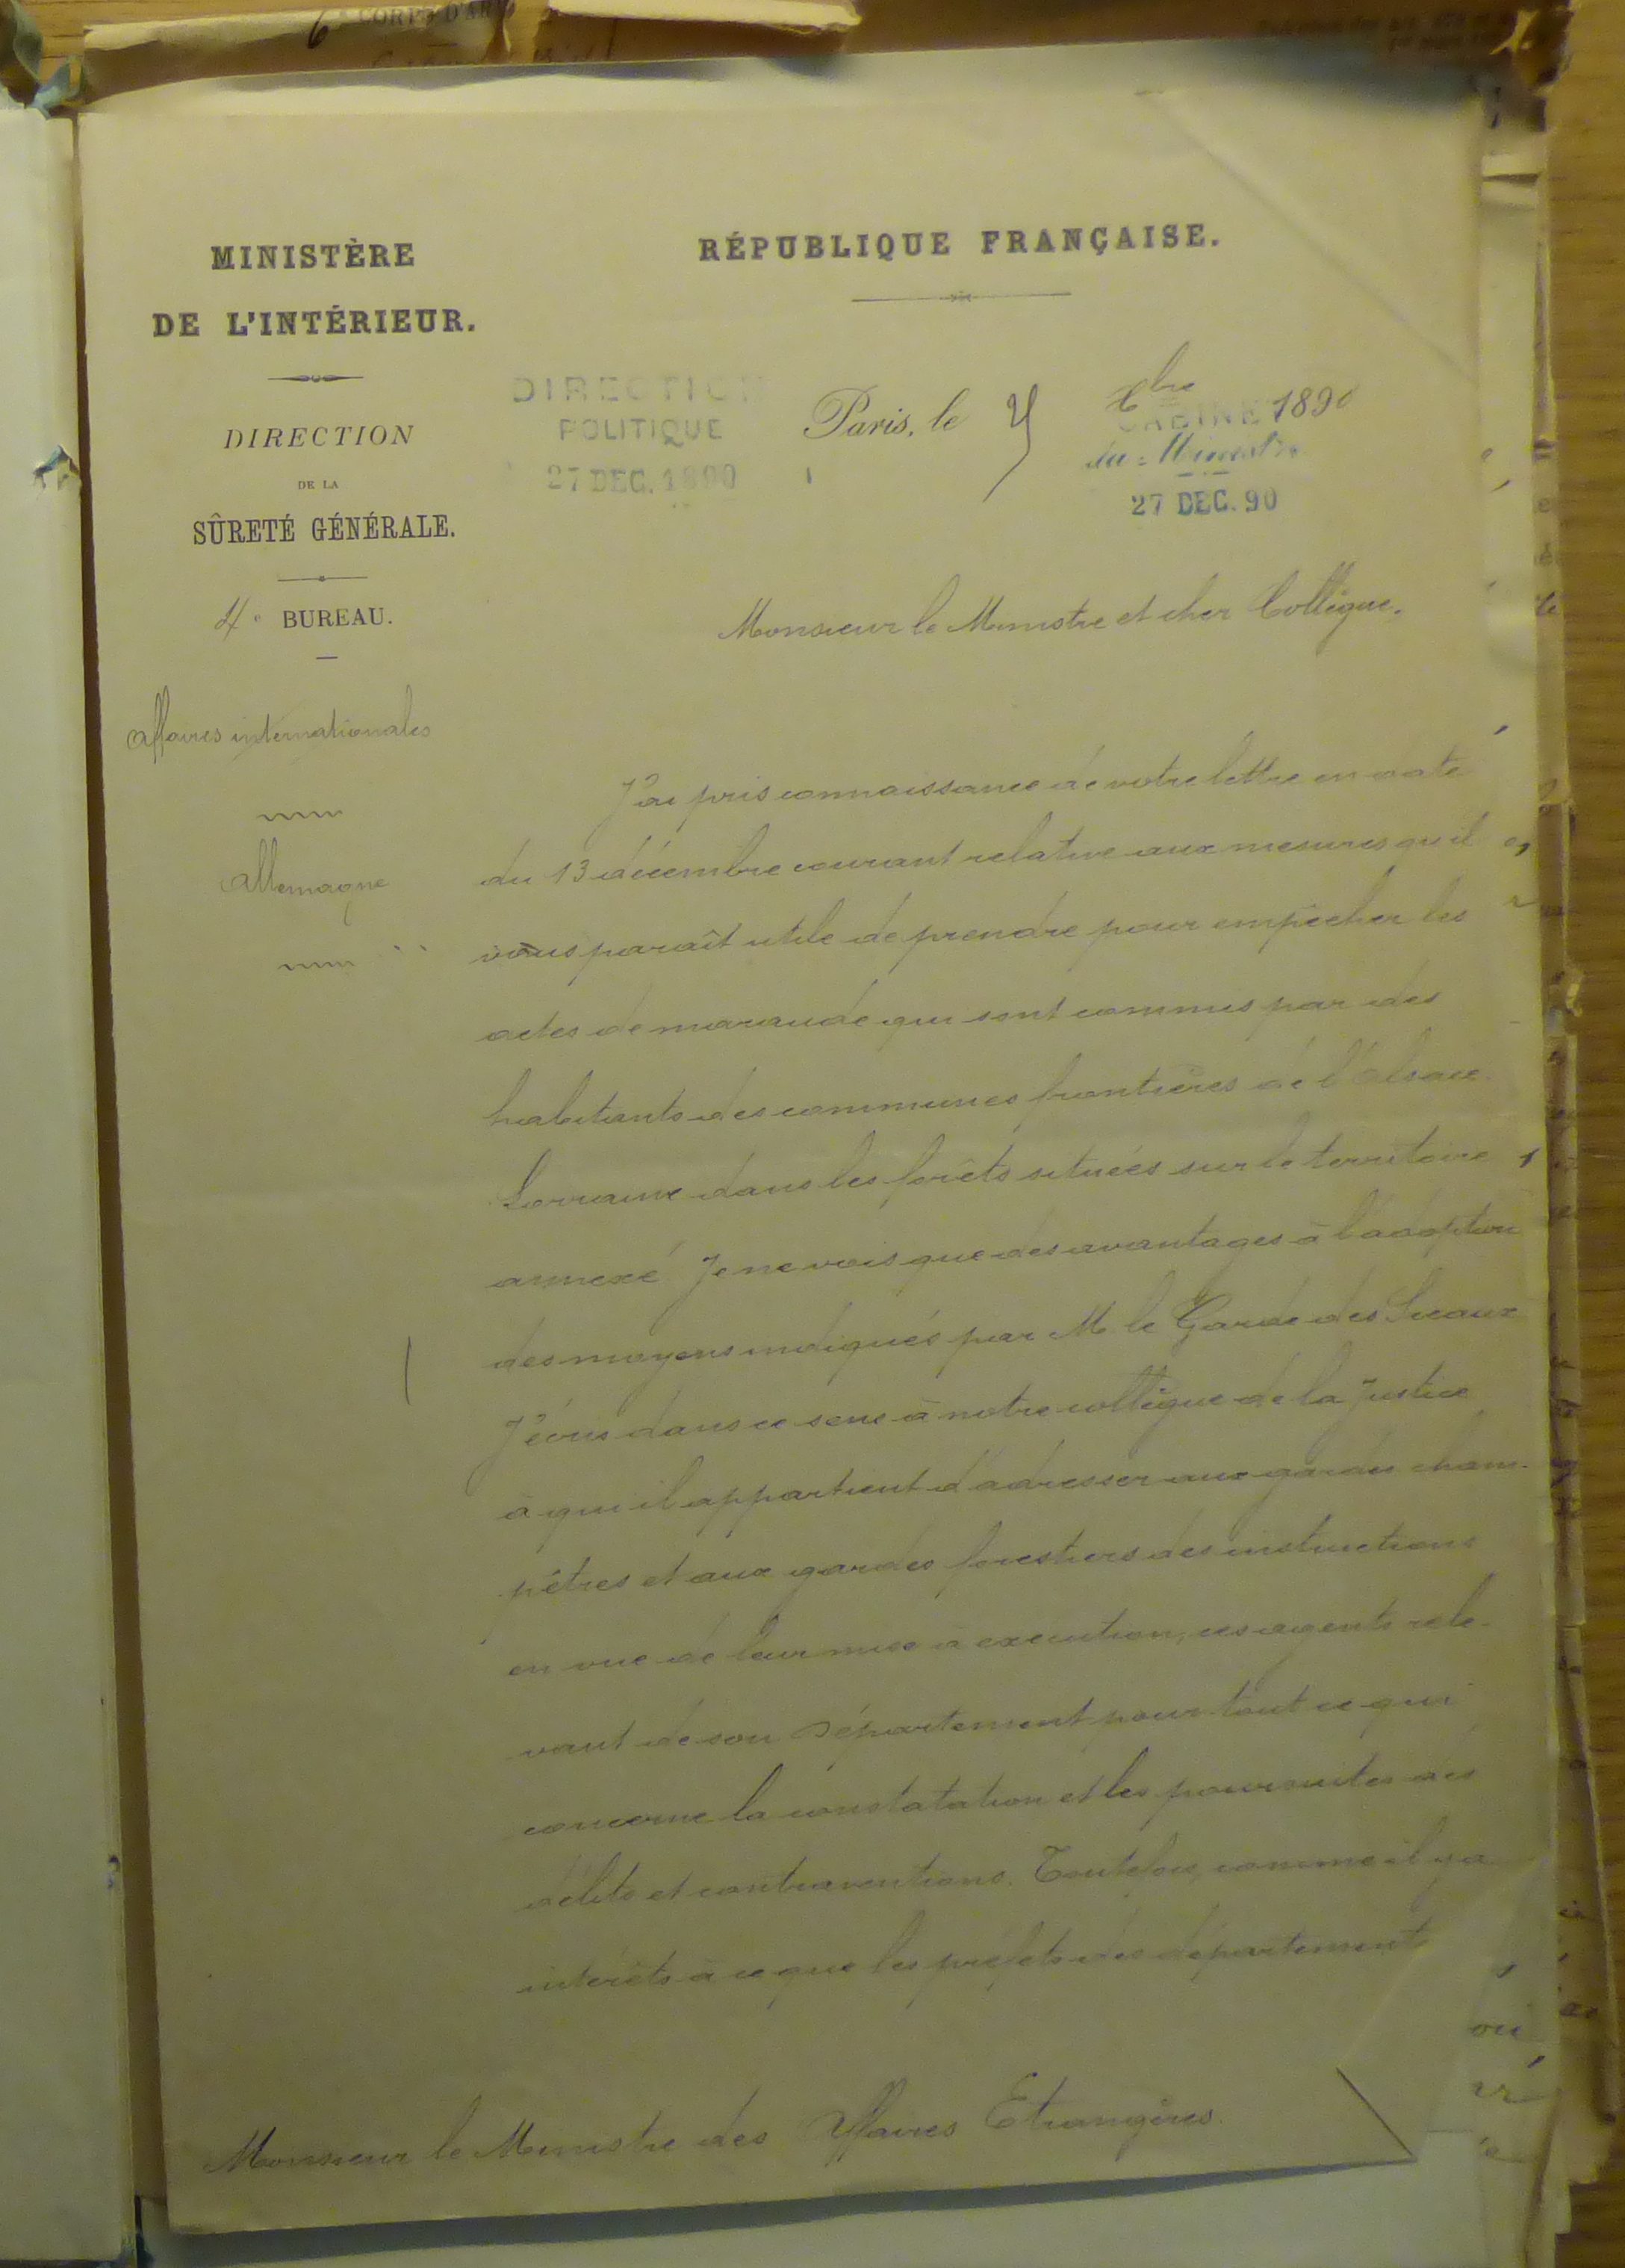 6e CORPS D'AR
MINISTÈRE
DE L'INTÉRIEUR.
DIRECTION
DE LA
SÛRETÉ GÉNÉRALE.
4e BUREAU.
Affaires internationales
Allemagne
RÉPUBLIQUE FRANÇAISE.
DIRECTION
POLITIQUE
27 DEC. 1890
Paris, le Xbre 1890
CABINET
du Ministre
27 DEC. 90
Monsieur le Ministre et cher Collègue,
J'ai pris connaissance de votre lettre en date
du 13 décembre courant relative aux mesures qu'il
vous paraît utile de prendre pour empêcher les
actes de maraude qui sont commis par des
habitants des communes frontières de l'Alsace
Lorraine dans les forêts situées sur le territoire
annexé Je ne vois que des avantages à l'adoption
des moyens indiqués par M le Garde des Sceaux
J'écris dans ce sens à notre collègue de la Justice
à qui il appartient d'adresser aux gardes cham-
pêtres et aux gardes forestiers des instructions
en vue de leur mise à exécution, ces agents rele-
vant de son Département pour tout ce qui
concerne la constatation et les poursuites des
délits et contraventions. Toutefois, comme il y a
intérêts à ce que les préfets des département
Monsieur le Ministre des Affaires Etrangères.